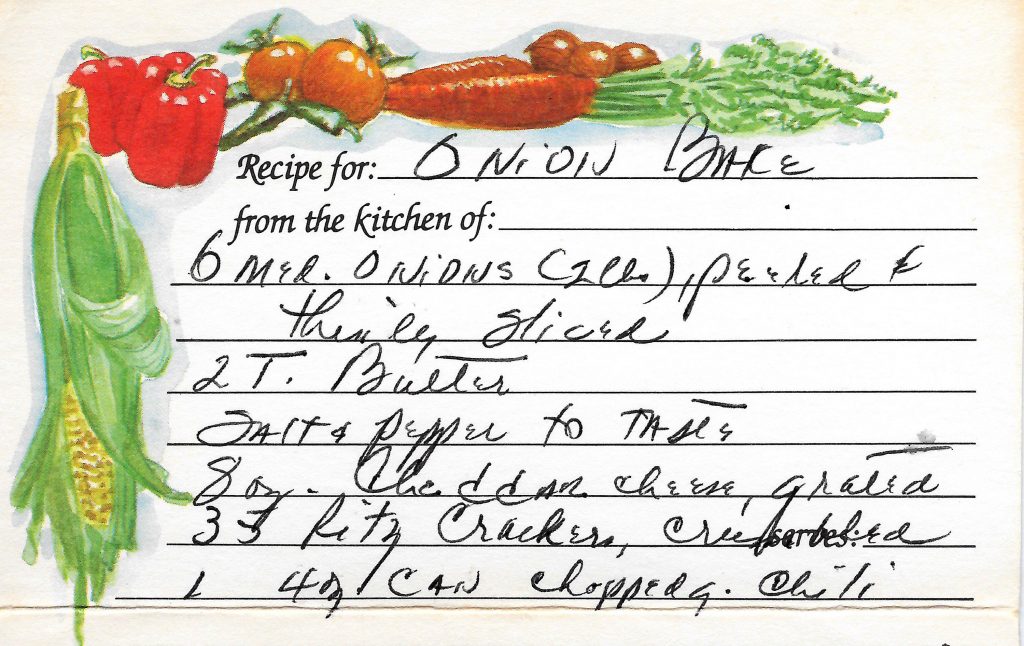 Recipe for: Onion Bake
from the kitchen of:
6 med. onions (2 lbs), peeled &
thinly sliced
2 T. Butter
Salt & pepper to taste
8 oz. Cheddar cheese, grated
33 Ritz Crackers, crushed
serves:
1 4oz. can chopped g. chili